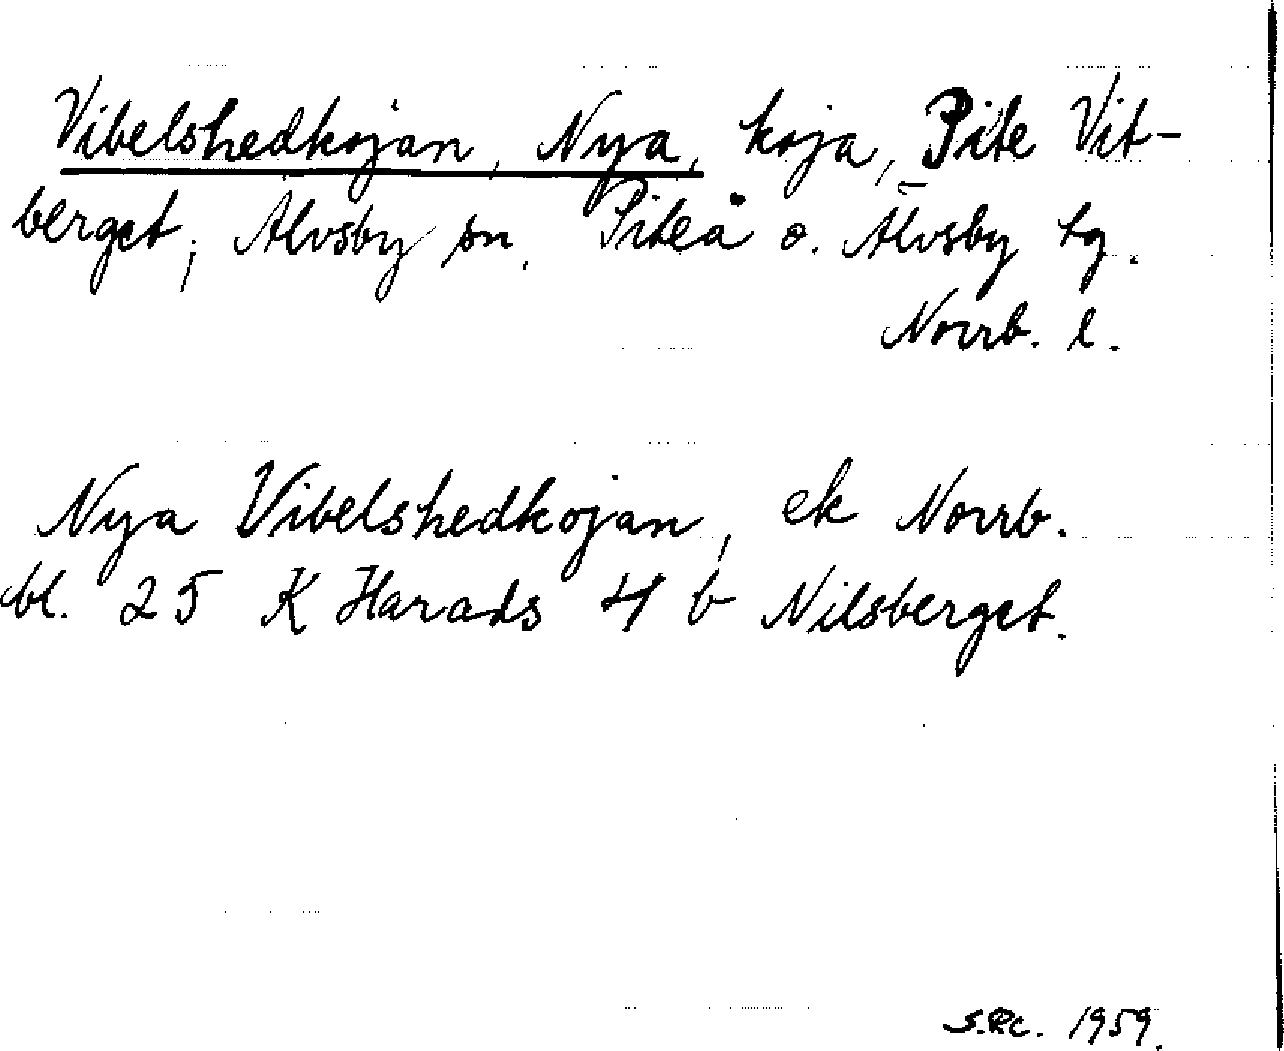 Vibelshedkojan, Nya, koja, Pite Vit-
berget, Älvsby sn. Piteå o. Älvsby tg.
Norrb. l.
Nya Vibelshedkojan, ek Norrb.
bl. 25 K Harads 4 b Nilsberget.
S.Rc. 1959.